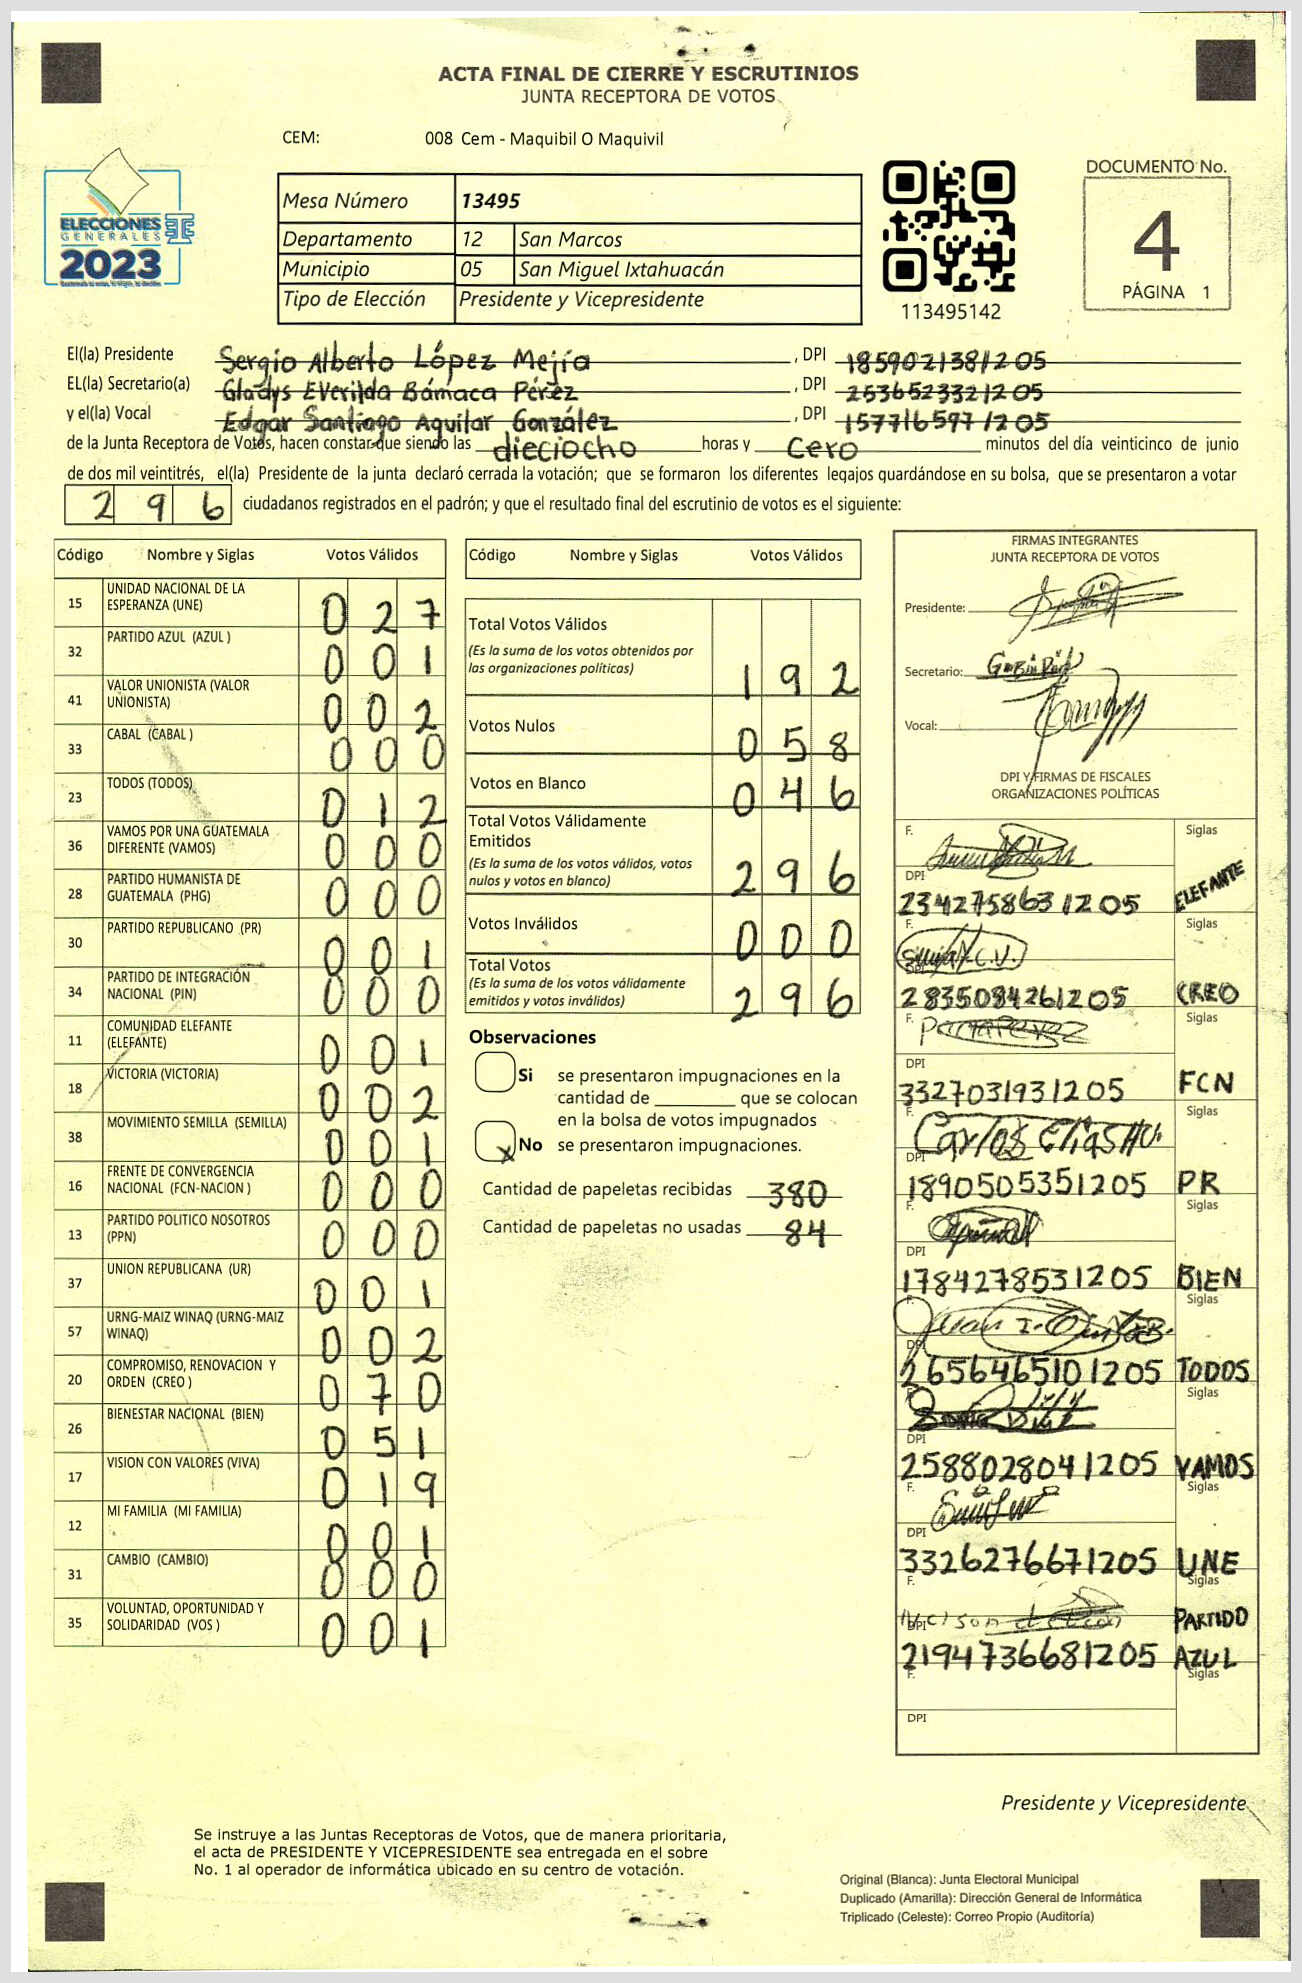 ACTA FINAL DE CIERRE Y ESCRUTINIOS
JUNTA RECEPTORA DE VOTOS
CEM: 008 Cem - Maquibil O Maquivil
ELECCIONES
GENERALES
2023
Mesa Número 13495
Departamento 12 San Marcos
Municipio 05 San Miguel Ixtahuacán
Tipo de Elección Presidente y Vicepresidente
113495142
DOCUMENTO No.
4
PÁGINA 1
El(la) Presidente Sergio Alberto López Mejía, DPI 1859021381205
EL(la) Secretario(a) Gladys EVerilda Bámaca Pérez, DPI 2536523321205
y el(la) Vocal Edgar Santiago Aguilar González, DPI 1577165971205
de la Junta Receptora de Votos, hacen constar que siendo las dieciocho horas y Cero minutos del día veinticinco de junio
de dos mil veintitrés, el(la) Presidente de la junta declaró cerrada la votación; que se formaron los diferentes legajos quardándose en su bolsa, que se presentaron a votar
296 ciudadanos registrados en el padrón; y que el resultado final del escrutinio de votos es el siguiente:
Código Nombre y Siglas Votos Válidos
15 UNIDAD NACIONAL DE LA ESPERANZA (UNE) 027
32 PARTIDO AZUL (AZUL ) 001
41 VALOR UNIONISTA (VALOR UNIONISTA) 002
33 CABAL (CABAL ) 000
23 TODOS (TODOS) 012
36 VAMOS POR UNA GUATEMALA DIFERENTE (VAMOS) 000
28 PARTIDO HUMANISTA DE GUATEMALA (PHG) 000
30 PARTIDO REPUBLICANO (PR) 001
34 PARTIDO DE INTEGRACIÓN NACIONAL (PIN) 000
11 COMUNIDAD ELEFANTE (ELEFANTE) 001
18 VICTORIA (VICTORIA) 002
38 MOVIMIENTO SEMILLA (SEMILLA) 001
16 FRENTE DE CONVERGENCIA NACIONAL (FCN-NACION ) 000
13 PARTIDO POLITICO NOSOTROS (PPN) 000
37 UNION REPUBLICANA (UR) 001
57 URNG-MAIZ WINAQ (URNG-MAIZ WINAQ) 002
20 COMPROMISO, RENOVACION Y ORDEN (CREO ) 070
26 BIENESTAR NACIONAL (BIEN) 051
17 VISION CON VALORES (VIVA) 019
12 MI FAMILIA (MI FAMILIA) 001
31 CAMBIO (CAMBIO) 000
35 VOLUNTAD, OPORTUNIDAD Y SOLIDARIDAD (VOS ) 001
Código Nombre y Siglas Votos Válidos
Total Votos Válidos
(Es la suma de los votos obtenidos por
las organizaciones políticas) 192
Votos Nulos 058
Votos en Blanco 046
Total Votos Válidamente
Emitidos
(Es la suma de los votos válidos, votos
nulos y votos en blanco) 296
Votos Inválidos 000
Total Votos
(Es la suma de los votos válidamente
emitidos y votos inválidos) 296
Observaciones
Si se presentaron impugnaciones en la
cantidad de ________ que se colocan
en la bolsa de votos impugnados
x No se presentaron impugnaciones.
Cantidad de papeletas recibidas 380
Cantidad de papeletas no usadas 84
FIRMAS INTEGRANTES
JUNTA RECEPTORA DE VOTOS
Presidente:
Secretario:
Vocal:
DPI Y FIRMAS DE FISCALES
ORGANIZACIONES POLÍTICAS
F. Siglas
DPI
2342758631205 ELEFANTE
F. Siglas
DPI
2835084261205 CREO
F. Siglas
DPI
3327031931205 FCN
F. Carlos Elias Siglas
DPI
1890505351205 PR
F. Siglas
DPI
1784278531205 BIEN
F. Juan Siglas
DPI
2656465101205 TODOS
F. Siglas
DPI
2588028041205 VAMOS
F. Siglas
DPI
3326276671205 UNE
F. Siglas
DPI PARTIDO
2194736681205 AZUL
F. Siglas
DPI
Presidente y Vicepresidente
Se instruye a las Juntas Receptoras de Votos, que de manera prioritaria,
el acta de PRESIDENTE Y VICEPRESIDENTE sea entregada en el sobre
No. 1 al operador de informática ubicado en su centro de votación.
Original (Blanca): Junta Electoral Municipal
Duplicado (Amarilla): Dirección General de Informática
Triplicado (Celeste): Correo Propio (Auditoría)